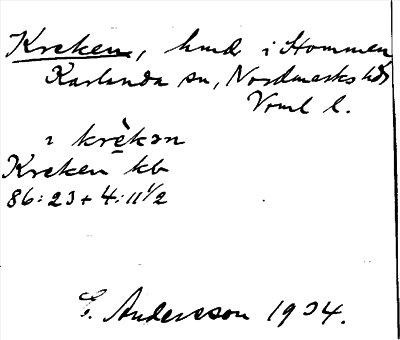 Kreken, hmd i Hommen
Karlanda sn, Nordmarks hd
Vrml l.
krèkən
Kreken kb
86:23 + 4:11 1/2
G. Andersson 1934.